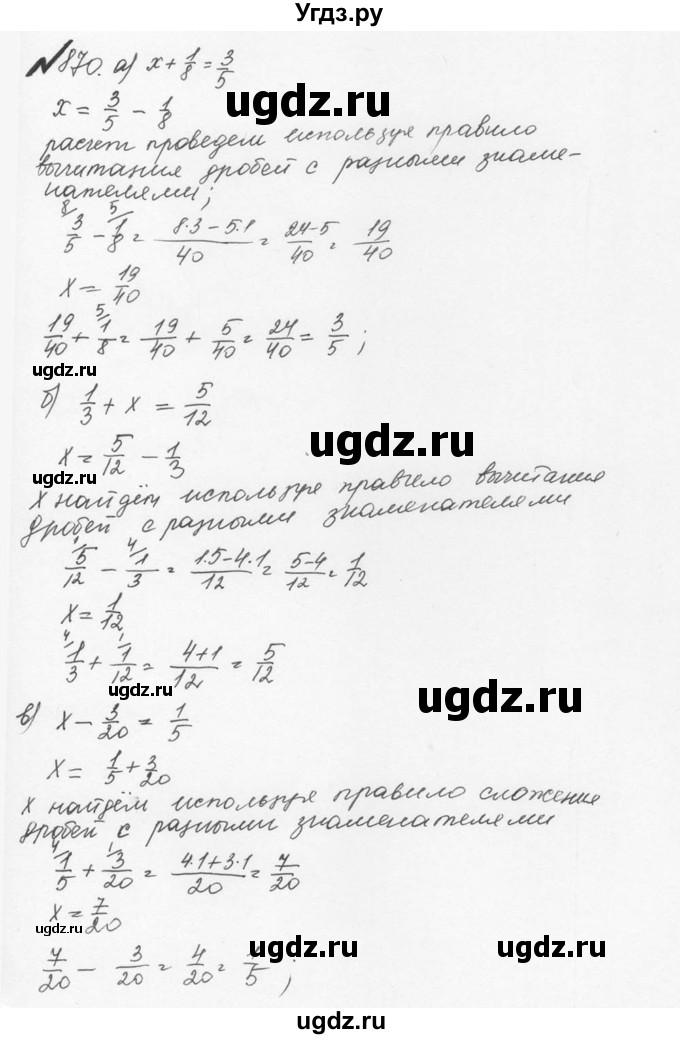 Угдз.ру
№870. а) x + 1/8 = 3/5
x = 3/5 - 1/8
ugdz.ru
расчет проведем используя правило
вычитания дробей с разными знаме-
нателями;
8 3/5 - 5 1/8 = (8·3-5·1)/40 = (24-5)/40 = 19/40
x = 19/40
ugdz.ru
19/40 + 5 1/8 = 19/40 + 5/40 = 24/40 = 3/5 ;
ugdz.ru
б) 1/3 + x = 5/12
x = 5/12 - 1/3
ugdz.ru
ugdz.ru
x найдём используя правило вычитания
дробей с разными знаменателями
1 5/12 - 4 1/3 = (1·5-4·1)/12 = (5-4)/12 = 1/12
x = 1/12
4 1/3 + 1 1/12 = (4+1)/12 = 5/12
ugdz.ru
ugdz.ru
в) x - 3/20 = 1/5
x = 1/5 + 3/20
x найдём используя правило сложение
дробей с разными знаменателями
4 1/5 + 1 3/20 = (4·1+3·1)/20 = 7/20
x = 7/20
ugdz.ru
ugdz.ru
7/20 - 3/20 = 4/20 = 1/5 ;
ugdz.ru